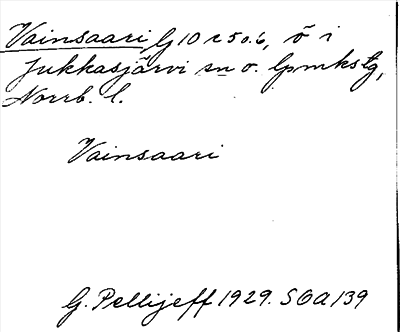 Vainsaari lj 10 r 5 o. 6, ö i
Jukkasjärvi sn o. lpmkstg,
Norrb. l.
Vainsaari
G. Pellijeff 1929. SOA 139